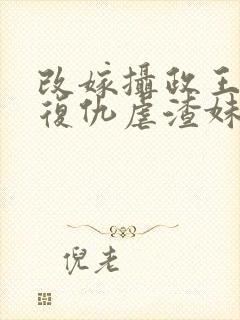 改嫁攝政王
復仇虐渣妹
倪老